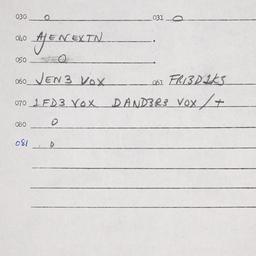 030 0 031 0
040 AJENEXTN .
050 0 .
060 JEN3 VOX 061 FRI3D2KS
070 1FD3 VOX DAND3R3 VOX /+
080 0
081 . 0